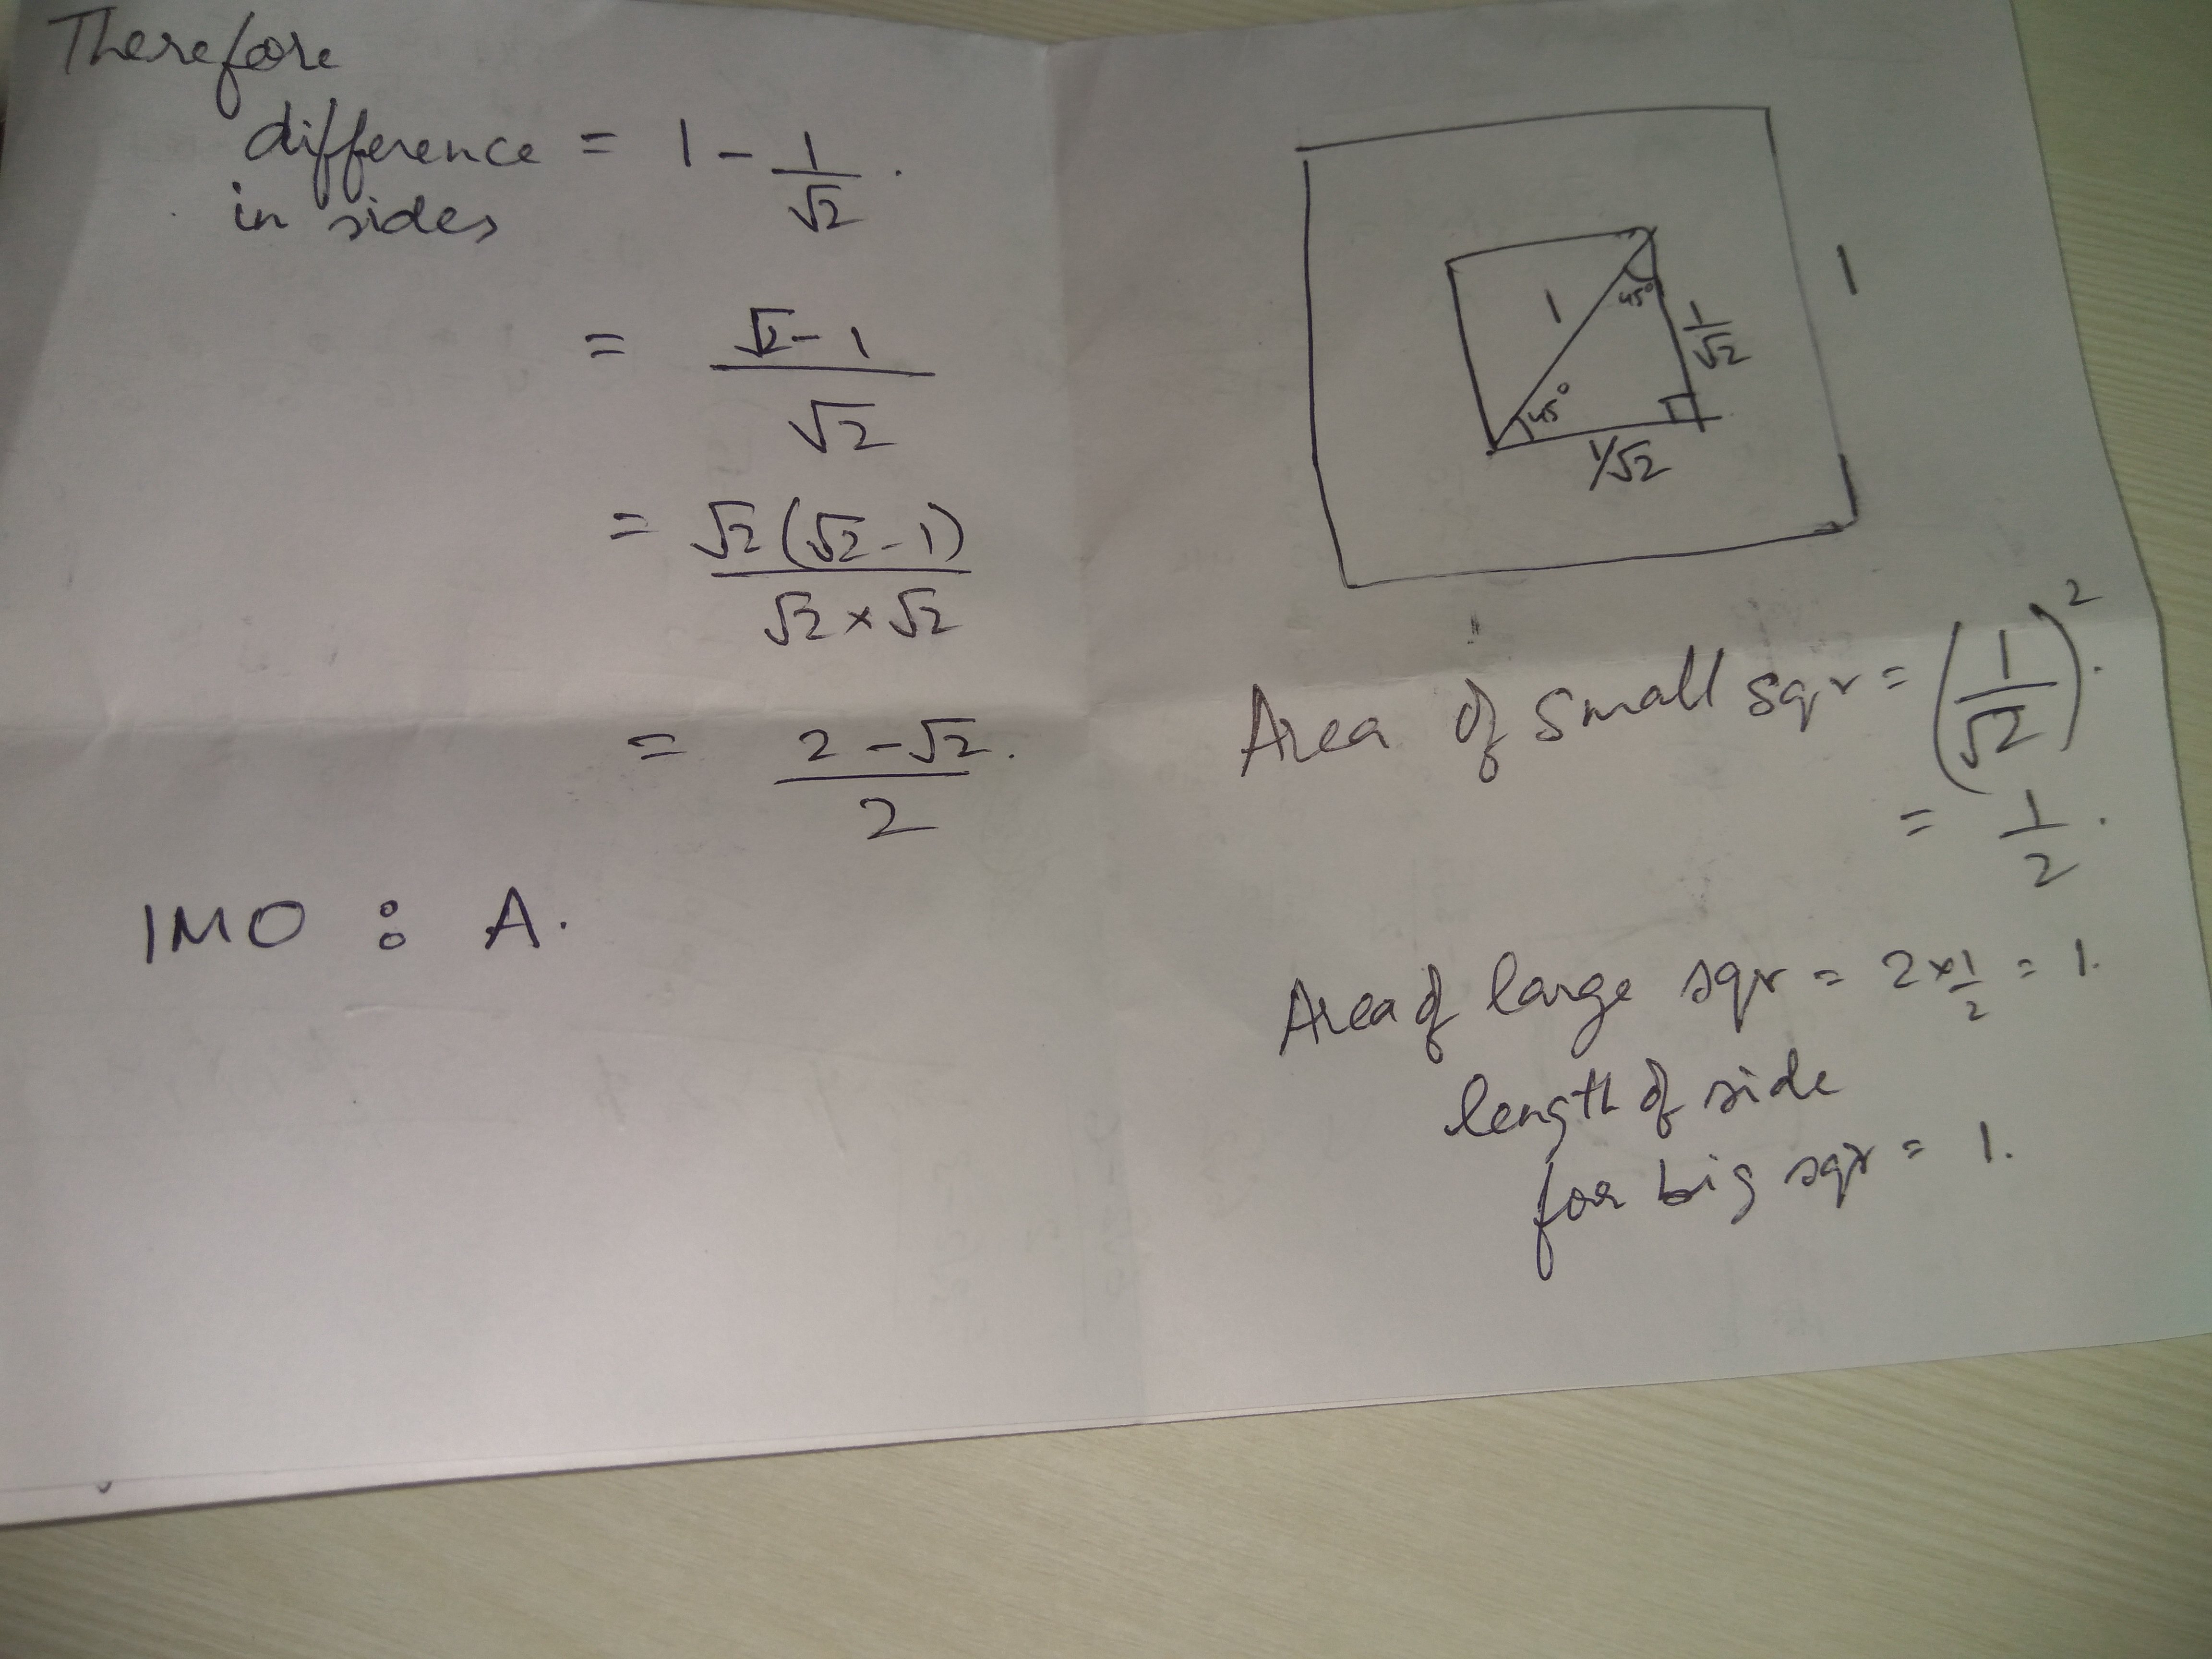 Therefore
difference = 1 - 1/√2 .
in sides
= √2 - 1 / √2
= √2 (√2 - 1) / √2 × √2
= 2 - √2 / 2 .
IMO : A.
1
1
45°
1/√2
45°
1/√2
Area of small sqr = (1/√2)² .
= 1/2 .
Area of large sqr = 2 × 1/2 = 1.
length of side
for big sqr = 1.